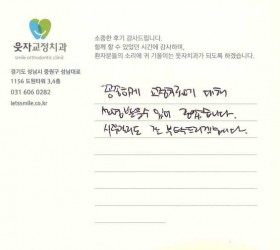 웃자교정치과
smile orthodontic clinic
경기도 성남시 중원구 성남대로
1156 도원타워 3,4층
031 606 0282
letssmile.co.kr
소중한 후기 감사드립니다.
함께 할 수 있었던 시간에 감사하며,
환자분들의 소리에 귀 기울이는 웃자치과가 되도록 하겠습니다.
궁금하게 교정하기 대해
설명받을수 있어 좋았습니다.
시작까지도 잘 부탁드리겠습니다.